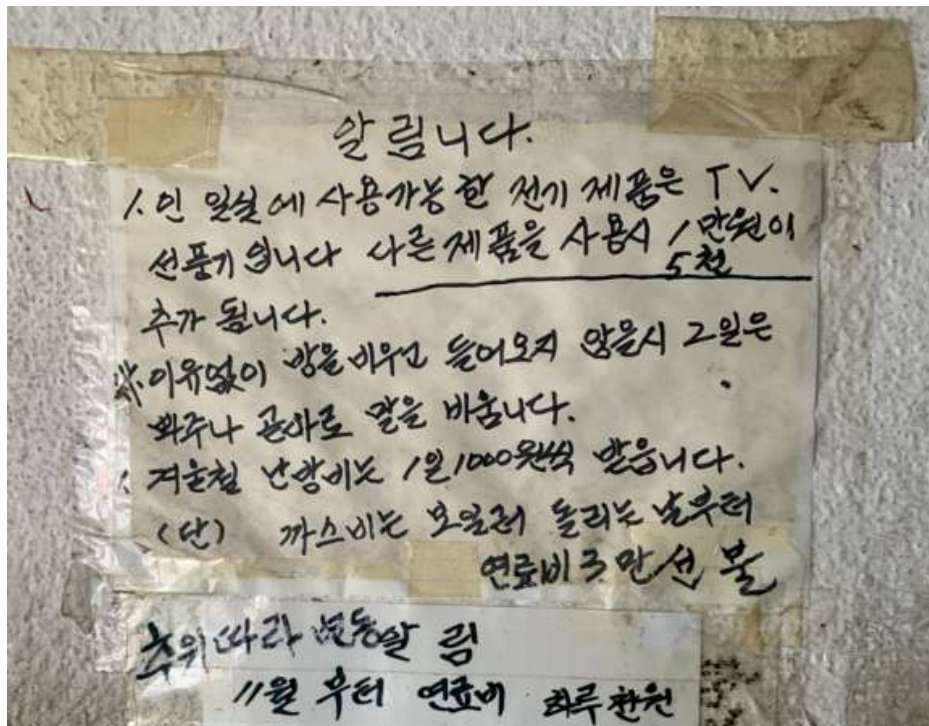 알림니다.
1.인 일실에 사용가능한 전기 제품은 TV.
선풍기 입니다 다른제품을 사용시 1만원이
5천
추가 됩니다.
이유없이 방을 비우고 들어오지 않을시 2일은
봐주나 곧바로 방을 비움니다.
겨울철 난방비는 1일1000원씩 받습니다.
(단) 까스비는 보일러 돌리는 날부터
연료비 3만 선불
추위따라 변동알림
11월 부터 연료비 하루 천원